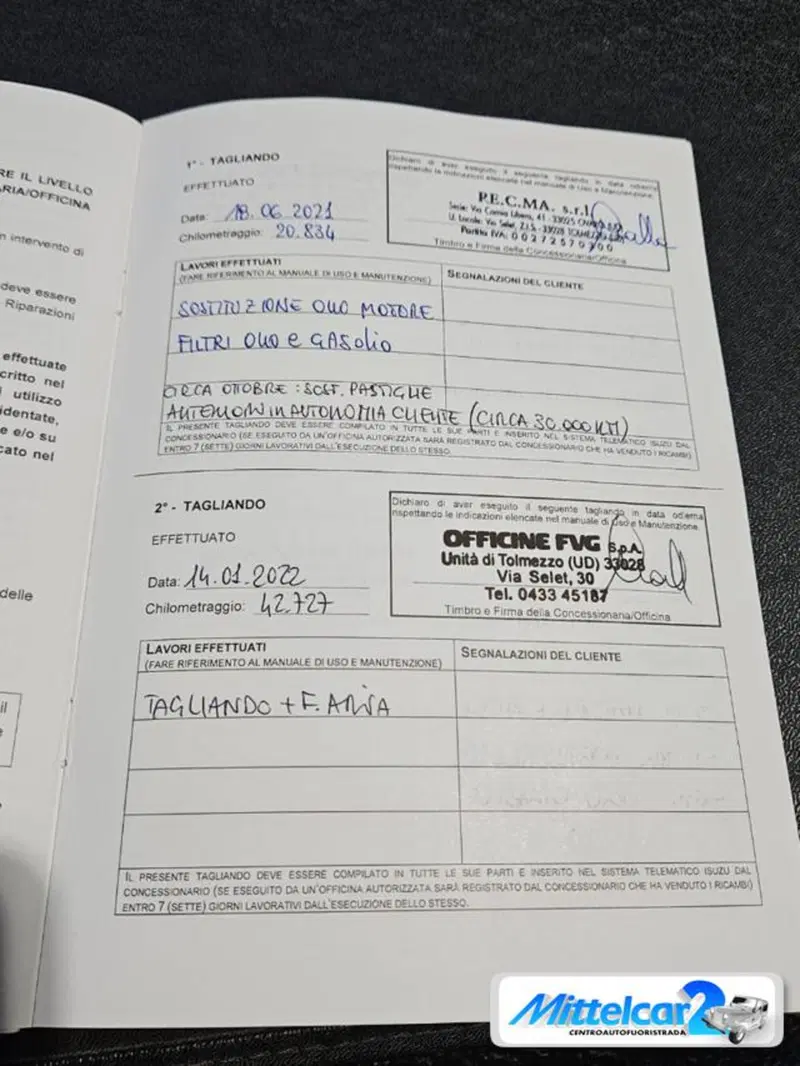 RE IL LIVELLO
ARIA/OFFICINA
n intervento di
deve essere
Riparazioni
effettuate
critto nel
utilizzo
identate,
e e/o su
cato nel
delle
il
e
1° - TAGLIANDO
EFFETTUATO
Data: 18.06.2021
Chilometraggio: 20.834
Dichiaro di aver eseguito il seguente tagliando in data odierna
rispettando le indicazioni elencate nel manuale di Uso e Manutenzione.
P.E.C.MA. s.r.l.
Sede: Via Camia Libera, 41 - 33025
U. Locale: Via Selet, Z.I.S. - 33028 TOLMEZZO
Partita IVA: 00272570300
Timbro e Firma della Concessionaria/Officina
LAVORI EFFETTUATI
(FARE RIFERIMENTO AL MANUALE DI USO E MANUTENZIONE)
SEGNALAZIONI DEL CLIENTE
SOSTITUZIONE OLIO MOTORE
FILTRI OLIO e GASOLIO
CIRCA OTTOBRE : SOST. PASTIGLIE
ANTERIORI IN AUTONOMIA CLIENTE (CIRCA 30.000 KM)
IL PRESENTE TAGLIANDO DEVE ESSERE COMPILATO IN TUTTE LE SUE PARTI E INSERITO NEL SISTEMA TELEMATICO ISUZU DAL
CONCESSIONARIO (SE ESEGUITO DA UN'OFFICINA AUTORIZZATA SARÀ REGISTRATO DAL CONCESSIONARIO CHE HA VENDUTO I RICAMBI)
ENTRO 7 (SETTE) GIORNI LAVORATIVI DALL'ESECUZIONE DELLO STESSO.
2° - TAGLIANDO
EFFETTUATO
Data: 14.01.2022
Chilometraggio: 42.727
Dichiaro di aver eseguito il seguente tagliando in data odierna
rispettando le indicazioni elencate nel manuale di Uso e Manutenzione.
OFFICINE FVG S.p.A.
Unità di Tolmezzo (UD) 33028
Via Selet, 30
Tel. 0433 45187
Timbro e Firma della Concessionaria/Officina
LAVORI EFFETTUATI
(FARE RIFERIMENTO AL MANUALE DI USO E MANUTENZIONE)
SEGNALAZIONI DEL CLIENTE
TAGLIANDO + F. ARIA
IL PRESENTE TAGLIANDO DEVE ESSERE COMPILATO IN TUTTE LE SUE PARTI E INSERITO NEL SISTEMA TELEMATICO ISUZU DAL
CONCESSIONARIO (SE ESEGUITO DA UN'OFFICINA AUTORIZZATA SARÀ REGISTRATO DAL CONCESSIONARIO CHE HA VENDUTO I RICAMBI)
ENTRO 7 (SETTE) GIORNI LAVORATIVI DALL'ESECUZIONE DELLO STESSO.
Mittelcar2
CENTROAUTOFUORISTRADA